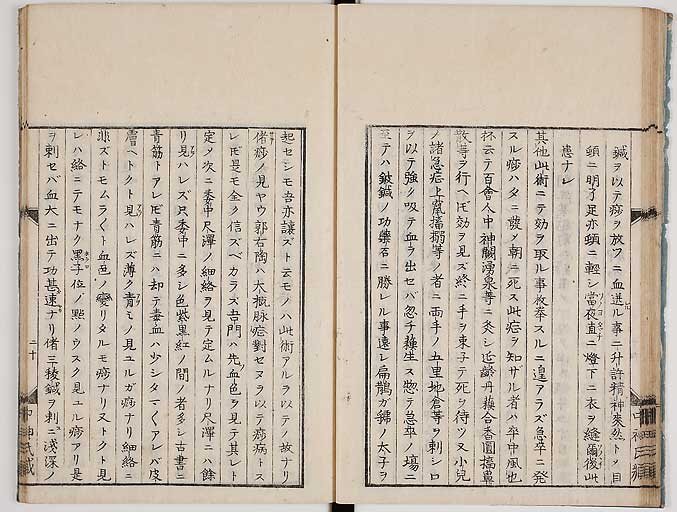 鍼ヲ以テ痧ヲ放フニ血迸ル事二升許精神爽然トメ目
頓ニ明了足亦頓ニ輕シ當夜直ニ燈下ニ衣ヲ縫爾後此
患ナシ
其他此術ニテ効ヲ取ル事枚擧スルニ遑アラズ急卒ニ発
スル痧ハタニ發メ朝ニ死ス此症ヲ知ザル者ハ卒中風也
ト云テ百會人中神闕湧泉等ニ灸シ近齢丹蘓合香圓
散等ヲ行ヘ𪜈効ヲ見ズ終ニ手ヲ束子テ死ヲ待ツ又小兒
ノ諸急症上竄搐搦等ノ者ニ両手ノ五里地倉等ヲ刺シ口
ヲ以テ強ク吸テ血ヲ出セバ忽チ蘓生ス惣テ急卒ノ場ニ
至テハ鈹鍼ノ功藥石ニ勝レル事遠シ扁鵲ガ號ノ太子ヲ
起セシモ吾亦讓ズト云モノハ此術アルヲ以テノ故ナリ
偖痧ノ見ヤウ郭右陶ハ大概脉症對セヌヲ以テ痧病トス
レ𪜈是モ全ク信ズベカラズ吾門ハ先血色ヲ見テ其レト
定メ次ニ委中尺澤ノ細絡ヲ見テ定ムルナリ尺澤ニハ餘
リ見ハレズ只委中ニ多シ色紫黒紅ノ間ノ者多シ古書ニ
青筋トアレ𪜈青筋ニハ却テ毒血ハ少シタマ〱アレバ皮
膚ヘトクト見ハレズ薄ク青ミノ見ユルガ痧ナリ細絡ニ
非ズトモムラ〱ト血色ノ變リタルモ痧ナリ又トクト見
レハ絡ニテモナク黒子位ノ點ノウスク見ユル痧アリ是
ヲ刺セバ血大ニ出テ功甚速ナリ偖三稜鍼ヲ刺ニ淺深ノ
二十